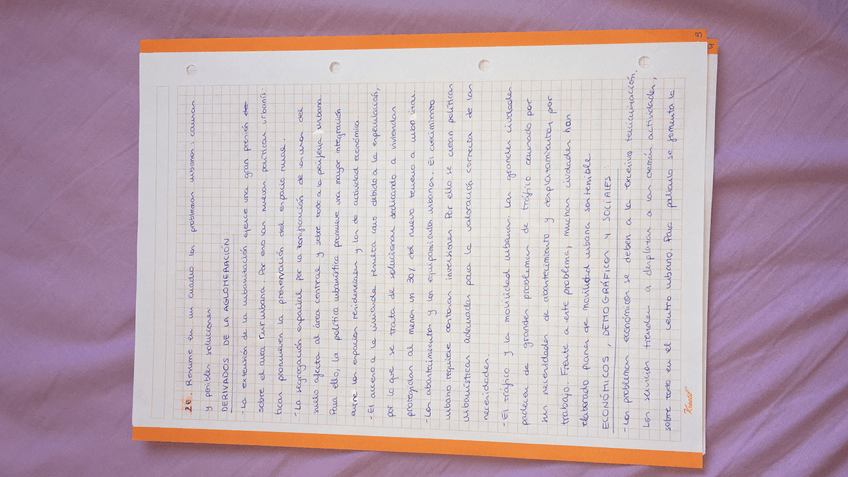 26 Resume en un cuadro los problemas urbanos, causas
y posibles soluciones
DERIVADOS DE LA AGLOMERACIÓN
- La extensión de la urbanización ejerce una gran presión
sobre el área periurbana. Por eso las nuevas políticas urbanís
ticas promueven la preservación del espacio rural.
- La segregación espacial por la zonificación de usos del
suelo afecta al área central y sobre todo a la periferia urbana
Para ello, la política urbanística promueve una mayor integración
entre los espacios residenciales y los de actividad económica
- El acceso a la vivienda resulta caro debido a la especulación,
por lo que se trata de solucionar dedicando a viviendas
protegidas al menos un 30% del nuevo terreno a urbanizar.
- Los abastecimientos y los equipamientos urbanos. El crecimiento
urbano requiere costosas inversiones. Por ello se crean políticas
urbanísticas adecuadas para la valoración correcta de las
necesidades.
- El tráfico y la movilidad urbana. Las grandes ciudades
padecen de grandes problemas de tráfico causado por
sus necesidades de abastecimiento y desplazamientos por
trabajo. Frente a este problema, muchas ciudades han
elaborado planes de movilidad urbana sostenible
ECONÓMICOS, DEMOGRÁFICOS Y SOCIALES
- Los problemas económicos se deben a la excesiva terciarización.
Los servicios tienden a desplazar a las demás actividades,
sobre todo en el centro urbano. Para paliarlo se fomenta la
5